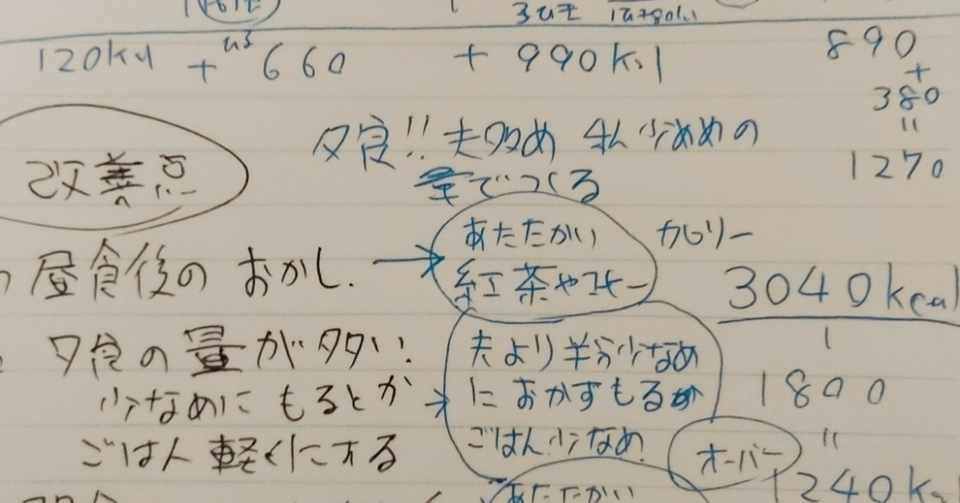 120kcal + 660 + 990kcal
890
+
380
=
1270
夕食!! 夫多め 私少なめの
量でつくる
改善点
昼食後の おかし. →
あたたかい
紅茶やコーヒー
カロリー
3040kcal
-
1800
=
1240k
オーバー
夕食の量が多い.
少なめに もるとか →
ごはん 軽くにする
夫より半分少なめ
に おかずもる
ごはん少なめ
あたたかい